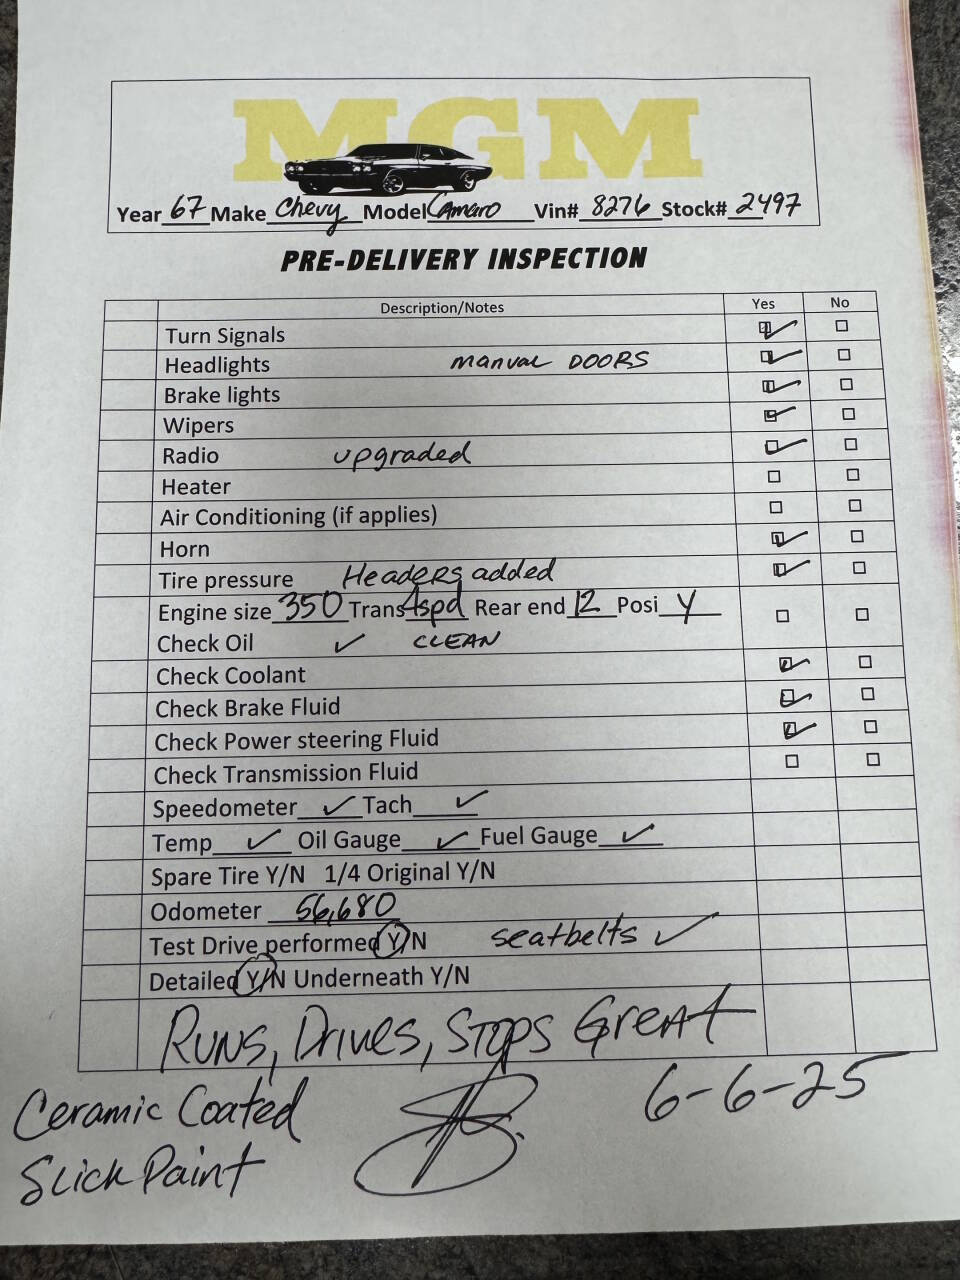 MGM
Year 67 Make Chevy Model Camaro Vin# 8276 Stock# 2497
PRE-DELIVERY INSPECTION
Description/Notes Yes No
Turn Signals
Headlights manual DOORS
Brake lights
Wipers
Radio upgraded
Heater
Air Conditioning (if applies)
Horn
Tire pressure Headers added
Engine size 350 Trans 4spd Rear end 12 Posi Y
Check Oil ✓ CLEAN
Check Coolant
Check Brake Fluid
Check Power steering Fluid
Check Transmission Fluid
Speedometer ✓ Tach ✓
Temp ✓ Oil Gauge ✓ Fuel Gauge ✓
Spare Tire Y/N 1/4 Original Y/N
Odometer 56,680
Test Drive performed Y/N seatbelts ✓
Detailed Y/N Underneath Y/N
Runs, Drives, Stops Great
Ceramic Coated 6-6-25
Slick Paint